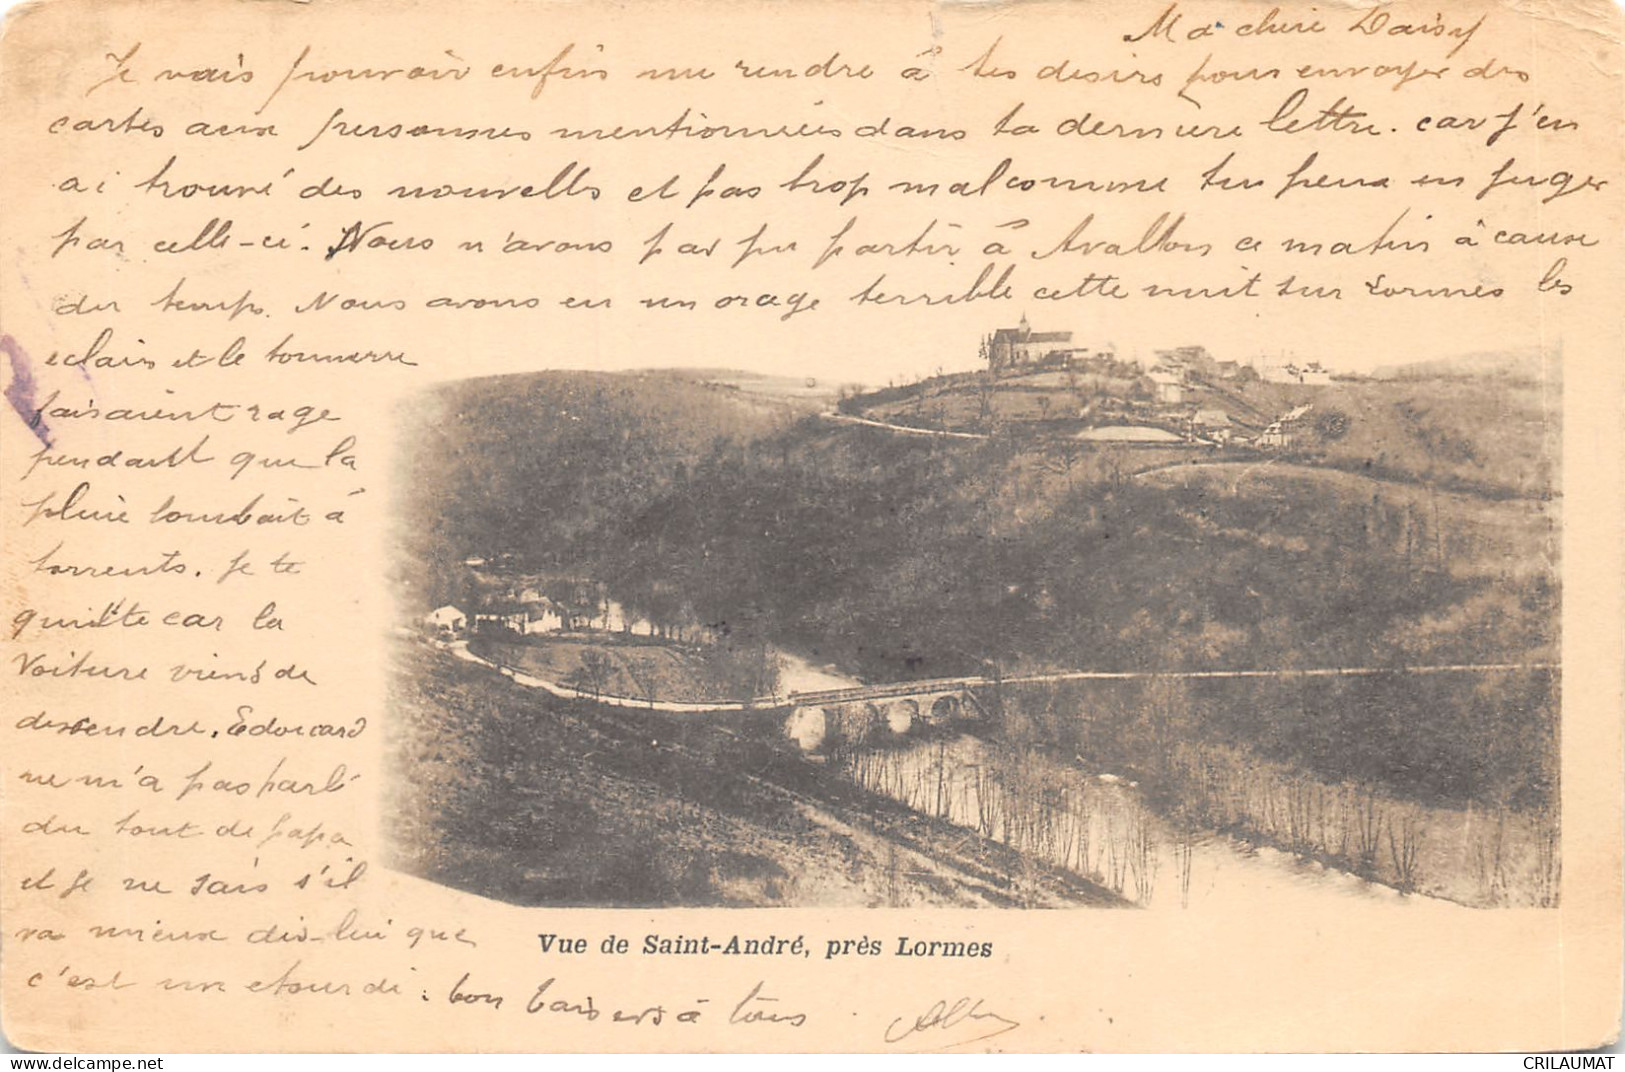 Ma chère Daisy
Je vais pouvoir enfin me rendre à tes desirs pour envoyer des
cartes aux personnes mentionnées dans ta dernière lettre. car j'en
ai trouvé des nouvelles et pas trop mal comme tu peux en juger
par celle-ci. Nous n'avons pas pu partir à Avallon ce matin à cause
du temps. Nous avons eu un orage terrible cette nuit sur Lormes les
eclairs et le tonnerre
faisaient rage
pendant que la
pluie tombait à
torrents. Je te
quitte car la
Voiture vient de
descendre. Edouard
ne m'a pas parlé
du tout de papa
et je ne sais s'il
va mieux dis-lui que
c'est un etourdi. bon baisers à tous
Vue de Saint-André, près Lormes
CRILAUMAT